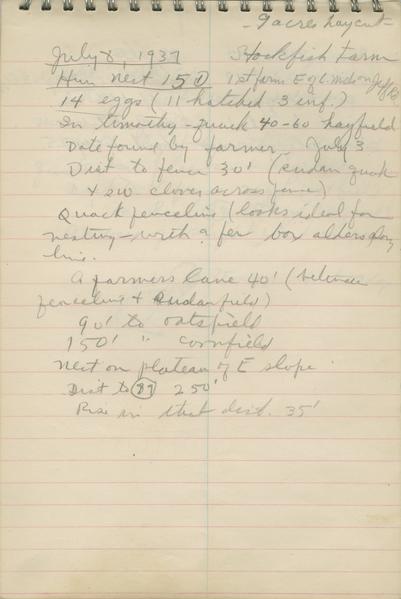 9 acres hay cut -
July 8, 1937 Stockfish Farm
Hun Nest 15 1st farm E of
14 eggs (11 hatched 3 inf.)
In timothy - quack 40-60 hayfield
Date found by farmer July 3
Dist to fence 30' (sudan quack
+ sw clover across fence)
Quack fenceline (looks ideal for
nesting - with a few box alders along
line.
A farmers lane 40' (between
fenceline + sudan field)
90' to oatsfield
150' " cornfield
Nest on plateau of E slope
Dist to 250'
Rise in that dist. 35'